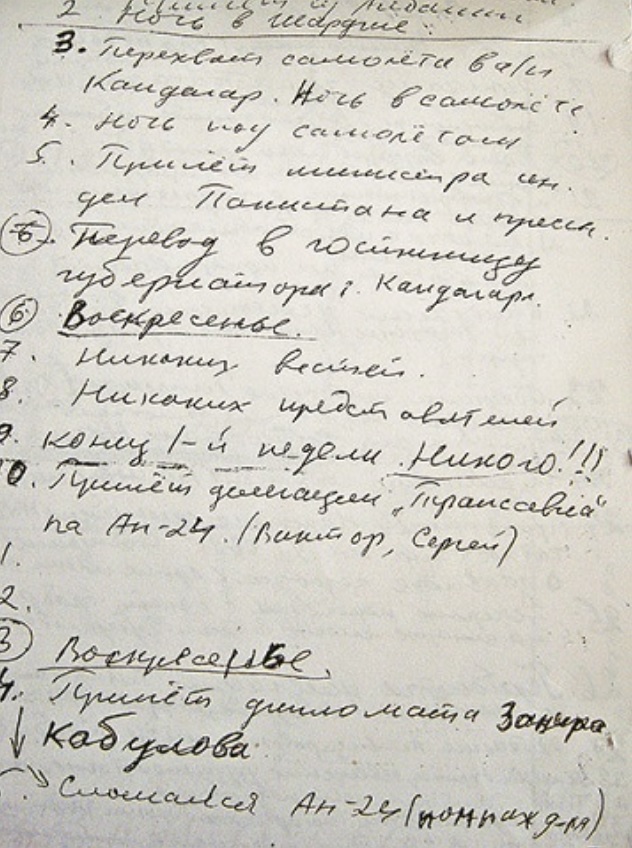 2. Прилёт из Албании
Ночь в Шардже.
3. Перехват самолёта в а/п
Кандагар. Ночь в самолёте
4. Ночь под самолётом
5. Прилёт министра ин.
дел Пакистана и пресн.
6. Перевод в гостиницу
губернатора г. Кандагара.
6 Воскресенье.
7. Никаких вестей.
8. Никаких представителей
9. конец 1-й недели. Никого!!!
0. Прилёт делегации „Трансавиа"
на Ан-24. (Виктор, Сергей)
1.
2.
3 Воскресенье.
4. Прилёт дипломата Замира
Кабулова
Сломался Ан-24